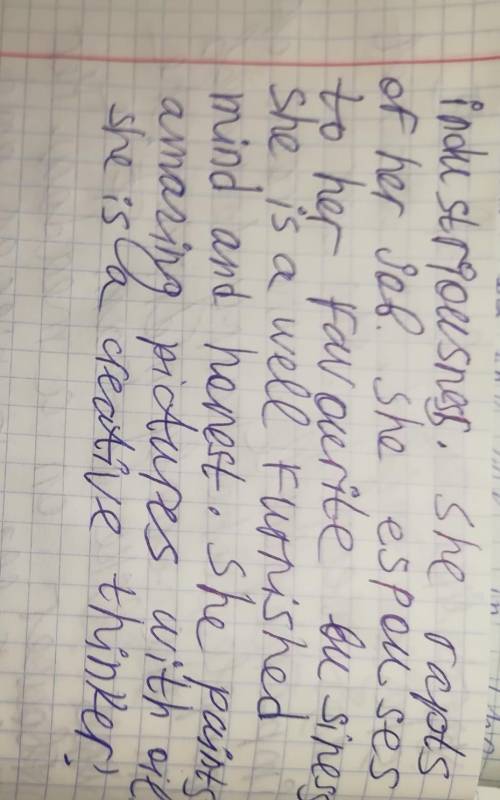 industriousness. She rapts
of her job. She espouses
to her favourite business
She is a well furnished
mind and honest. She paints
amazing pictures with oil
she is a creative thinker!